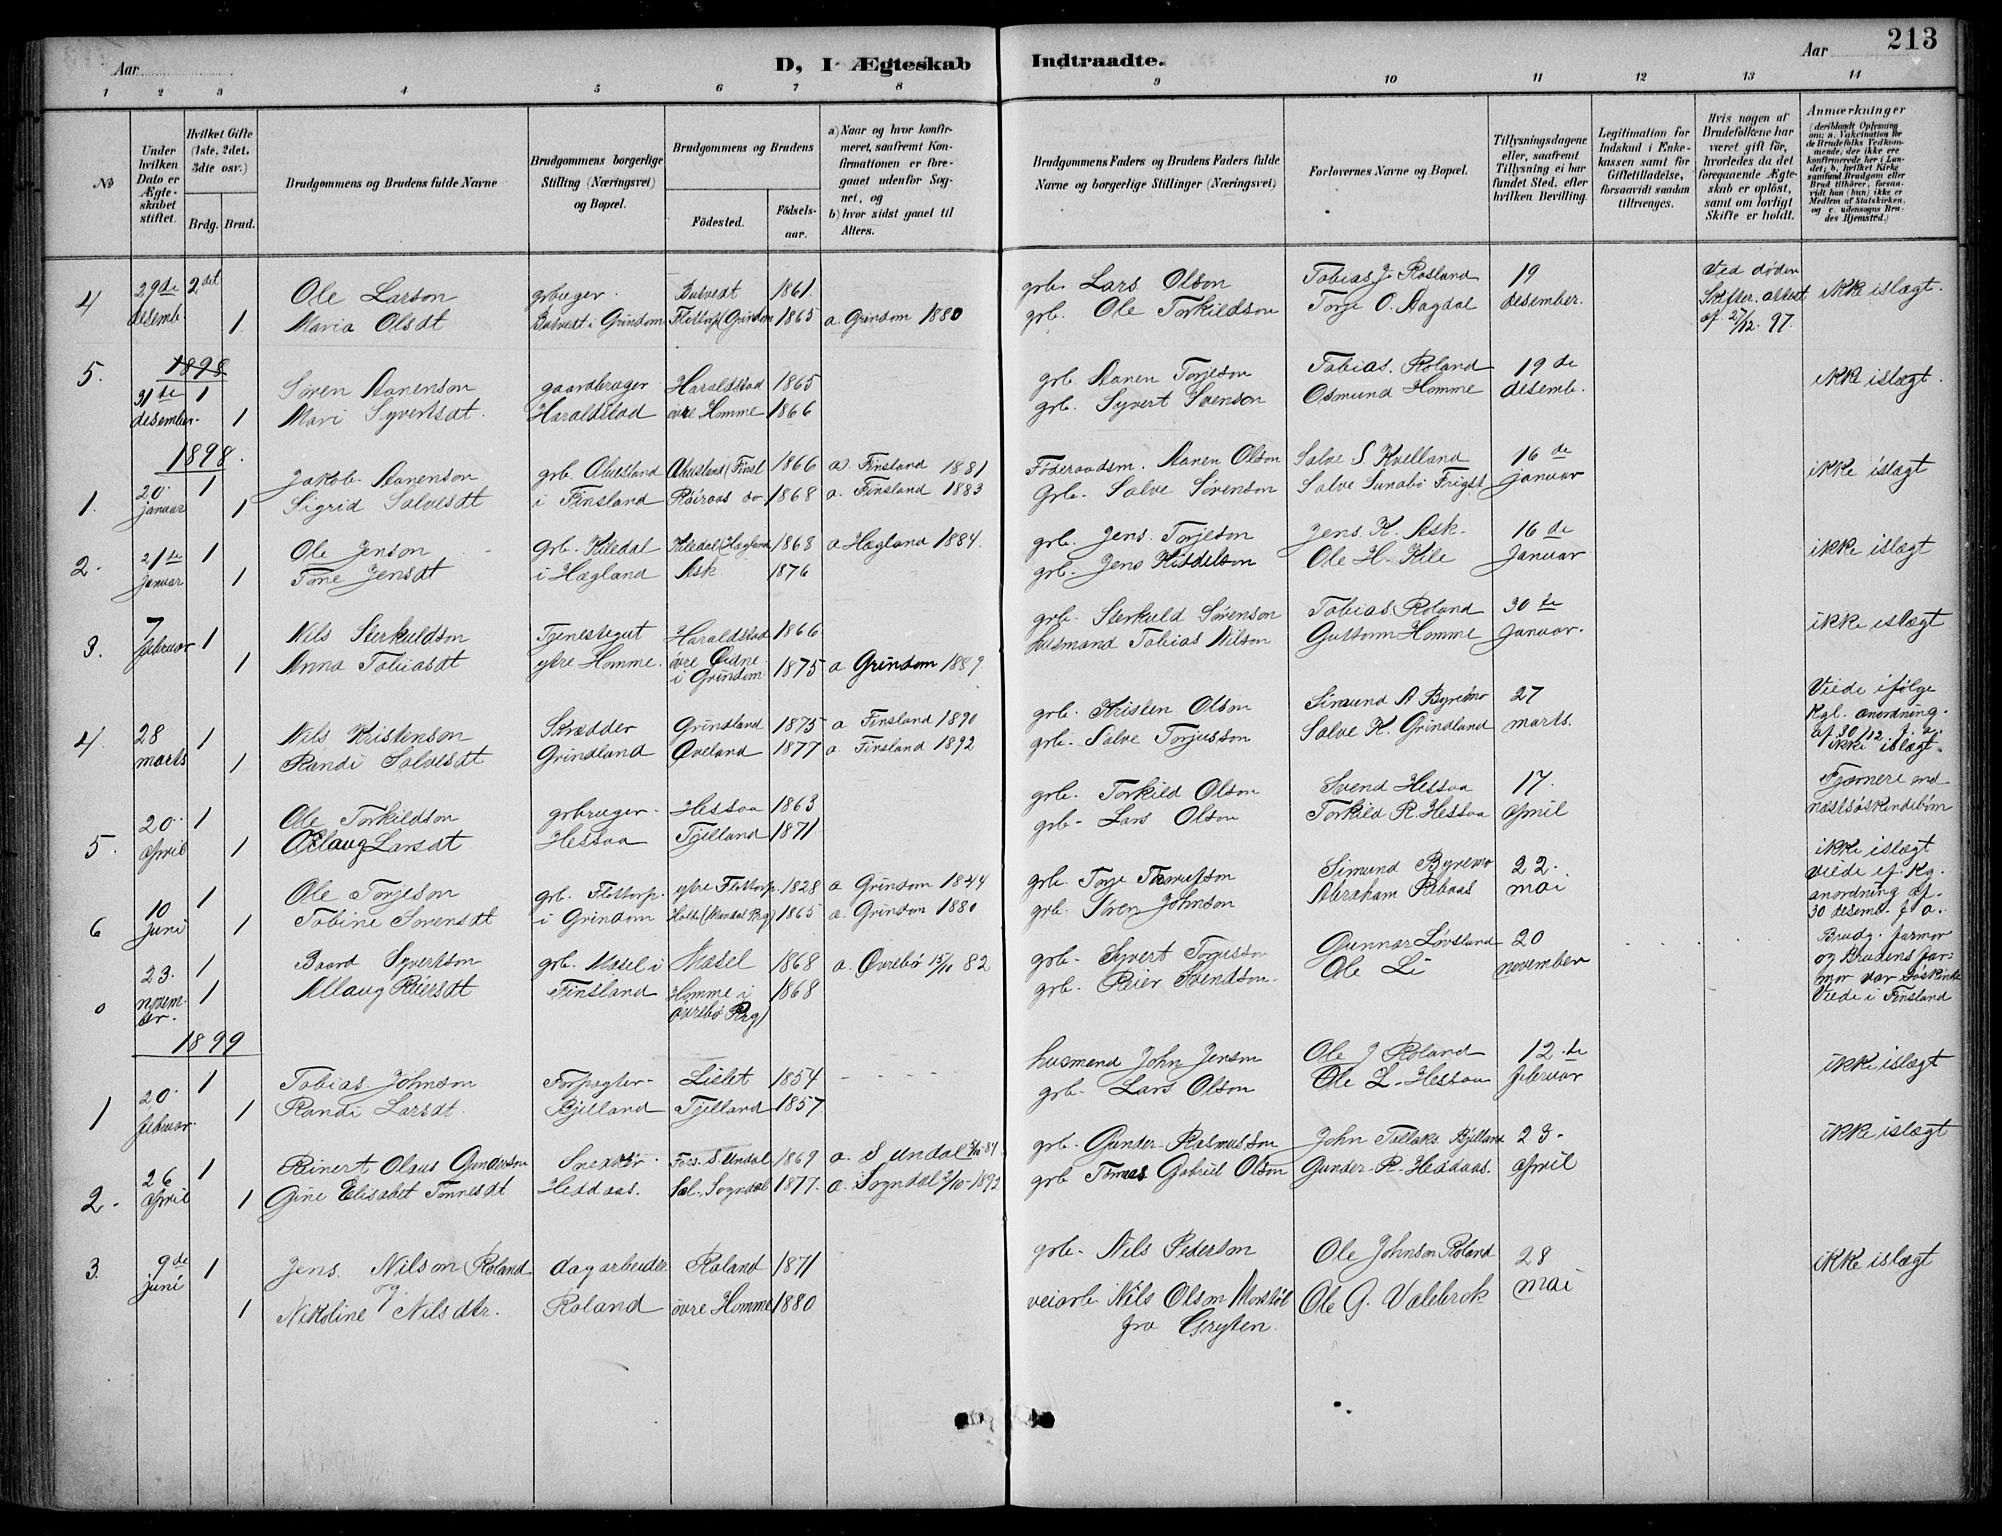 213
Aar
D, I Ægteskab Indtraadte.
Aar
1 2 3 4 5 6 7 8 9 10 11 12 13 14
No
Under hvilken Dato er Ægteskabet stiftet.
Hvilket Gifte (1ste, 2det, 3dte osv.)
Brdg. Brud.
Brudgommens og Brudens fulde Navne
Brudgommens borgerlige Stilling (Næringsvei) og Bopæl.
Brudgommens og Brudens
Fødested.
Fødselsaar.
a) Naar og hvor konfirmeret, saafremt Konfirmationen er foregaaet udenfor Sognet, og
b) hvor sidst gaaet til Alters.
Brudgommens Faders og Brudens Faders fulde Navne og borgerlige Stillinger (Næringsvei)
Forlovernes Navne og Bopæl.
Tillysningsdagene eller, saafremt Tillysning ei har fundet Sted, efter hvilken Bevilling.
Legitimation for Indskud i Enkekassen samt for Giftetilladelse, forsaavidt saadan tiltrænges.
Hvis nogen af Brudefolkene har været gift før, hvorledes da det foregaaende Ægteskab er opløst, samt om lovligt Skifte er holdt.
Anmærkninger
(deriblandt Oplysning om: a. Vakcination for de Brudefolks Vedkommende, der ikke ere konfirmerede her i Landet; b. hvilket Kirkesamfund Brudgom eller Brud tilhører, forsaavidt han (hun) ikke er Medlem af Statskirken, og c. udensogns Brudes Hjemsted.)
4 29de desemb. 2det Ole Larson grbruger. Butvedt 1861. grb. Lars Olson Tobias J. Rosland 19 Ved døden ikke islægt.
1 Maria Olsdt Butvedt i Grindom Flottorp (Grindom 1865 a. Grindom 1880 grb. Ole Torkildson Torje O. Aagdal desember. Skifter. attest af 27/12. 97.
1898
5. 31te desember. 1 Søren Aanenson gaardbruger Haraldstad 1865 grb. Aanen Torjeson Tobias. Roland 19de ikke islægt.
1 Mari Syvertsdt. Haraldstad øvre Homme 1866 grb. Syvert Svenson Osmund Homme desemb.
1898.
1. 20. januar 1 Jakob Aanenson grb. Abusland Abusland (Finsl 1866 a. Finsland 1881 Føderaadsm. Aanen Olson Salve S Kvelland 16de ikke islægt
1 Sigrid Salvesdt i Finsland Røiraas do 1868 a. Finsland 1883 Grb. Salve Sørenson Salve Sunabø Frigst januar
2. 21te januar 1 Ole Jenson grb. Kiledal Kiledal (Hægland 1868 a Hægland 1884. grb. Jens. Torjeson Jens. K. Ask. 16de ikke islægt
1 Tone Jensdt i Hægland Ask 1876 grb. Jens Kittelson Ole H. Kile Januar
3. 7 februar 1 Nils Sterkuldson Tjenestegut Haraldstad 1866 grb. Sterkuld Sørenson Tobias Roland 30te ikke islægt
1 Anna Tobiasdt ytre Homme. øvre Øidne i Grindom 1875 a Grindom 1889. husmand Tobias Nilson Guttorm Homme Januar.
4. 28 marts 1 Nils Kristenson Skrædder Grindland 1875 a Finsland 1890 grb. Kristen Olson Simund A Byremo 27 Viede ifølge
1 Randi Salvesdt Grindland Øveland 1877 a. Finsland 1892 grb. Salve Torjusson Salve K. Grindland marts. Kgl. anordning. af 30/12. f. a. ikke islægt.
5. 20. april 1 Ole Torkildson grbruger. Hessaa 1863 grb. Torkild Olson Svend Hessaa 17. Fjærnere end
1 Aslaug Larsdt Hessaa Tjelland 1871 grb. Lars Olson Torkild R. Hessaa april næstsøskendebrn
6 10 juni 1 Ole Torjeson grb. Flottorp. ytre Flottorp 1828 a Grindom 1844 grb. Torje Simund Byremo 22. ikke islægt
1 Tobine Sørensdt i Grindom Holte (Mandal Prg) 1865 a. Grindom 1880 grb. Søren Johnson Abraham Røbaas mai Viede ef. Kg. anordning af. 30 desemb. f. a.
0 23. november. 1 Baard Syvertson grb. Mæsel i Mæsel 1868 a. Øvrebø 15/10 82 grb. Syvert Torjusson Gunnar Løvsland 20 Brudg. farmor
1 Allaug Reiersdt Finsland Homme i øvrebø Prg) 1868 grb. Reier Svendson. Ole Li november og Brudens farmor var søskende Viede i Finsland
1899
1 20. februar. 1 Tobias. Johnson Forpagter. Lislet 1854 husmand John Jenson Ole J Roland 12.te ikke islægt
1 Randi Larsdt. Bjelland Tjelland 1857 grb. Lars Olson Ole L. Hessaa februar
2. 26 april 1 Reinert Olaus Gunderson Snekker. Foss. S. Undal 1869 a. S. Undal grb. Gunder. Rasmusson John Tellaks. Bjelland 23. ikke islægt
1 Gine Elisabet Tønnesdt Heddaas. Sogndal 1877. a. Sogndal 2/10-1892 grb Tønnes Gabriel Olson Gunder. R. Heddaas. april
3. 9de juni 1 Jens. Nilson Roland dagarbeider Roland 1871 grb. Nils Pederson Ole Johnson Roland 28 ikke islægt
1 Nikoline T. Nilsdtr. Roland øvre Homme 1880 veiarb. Nils Olson fra Gryten. Ole G. Valebrok mai